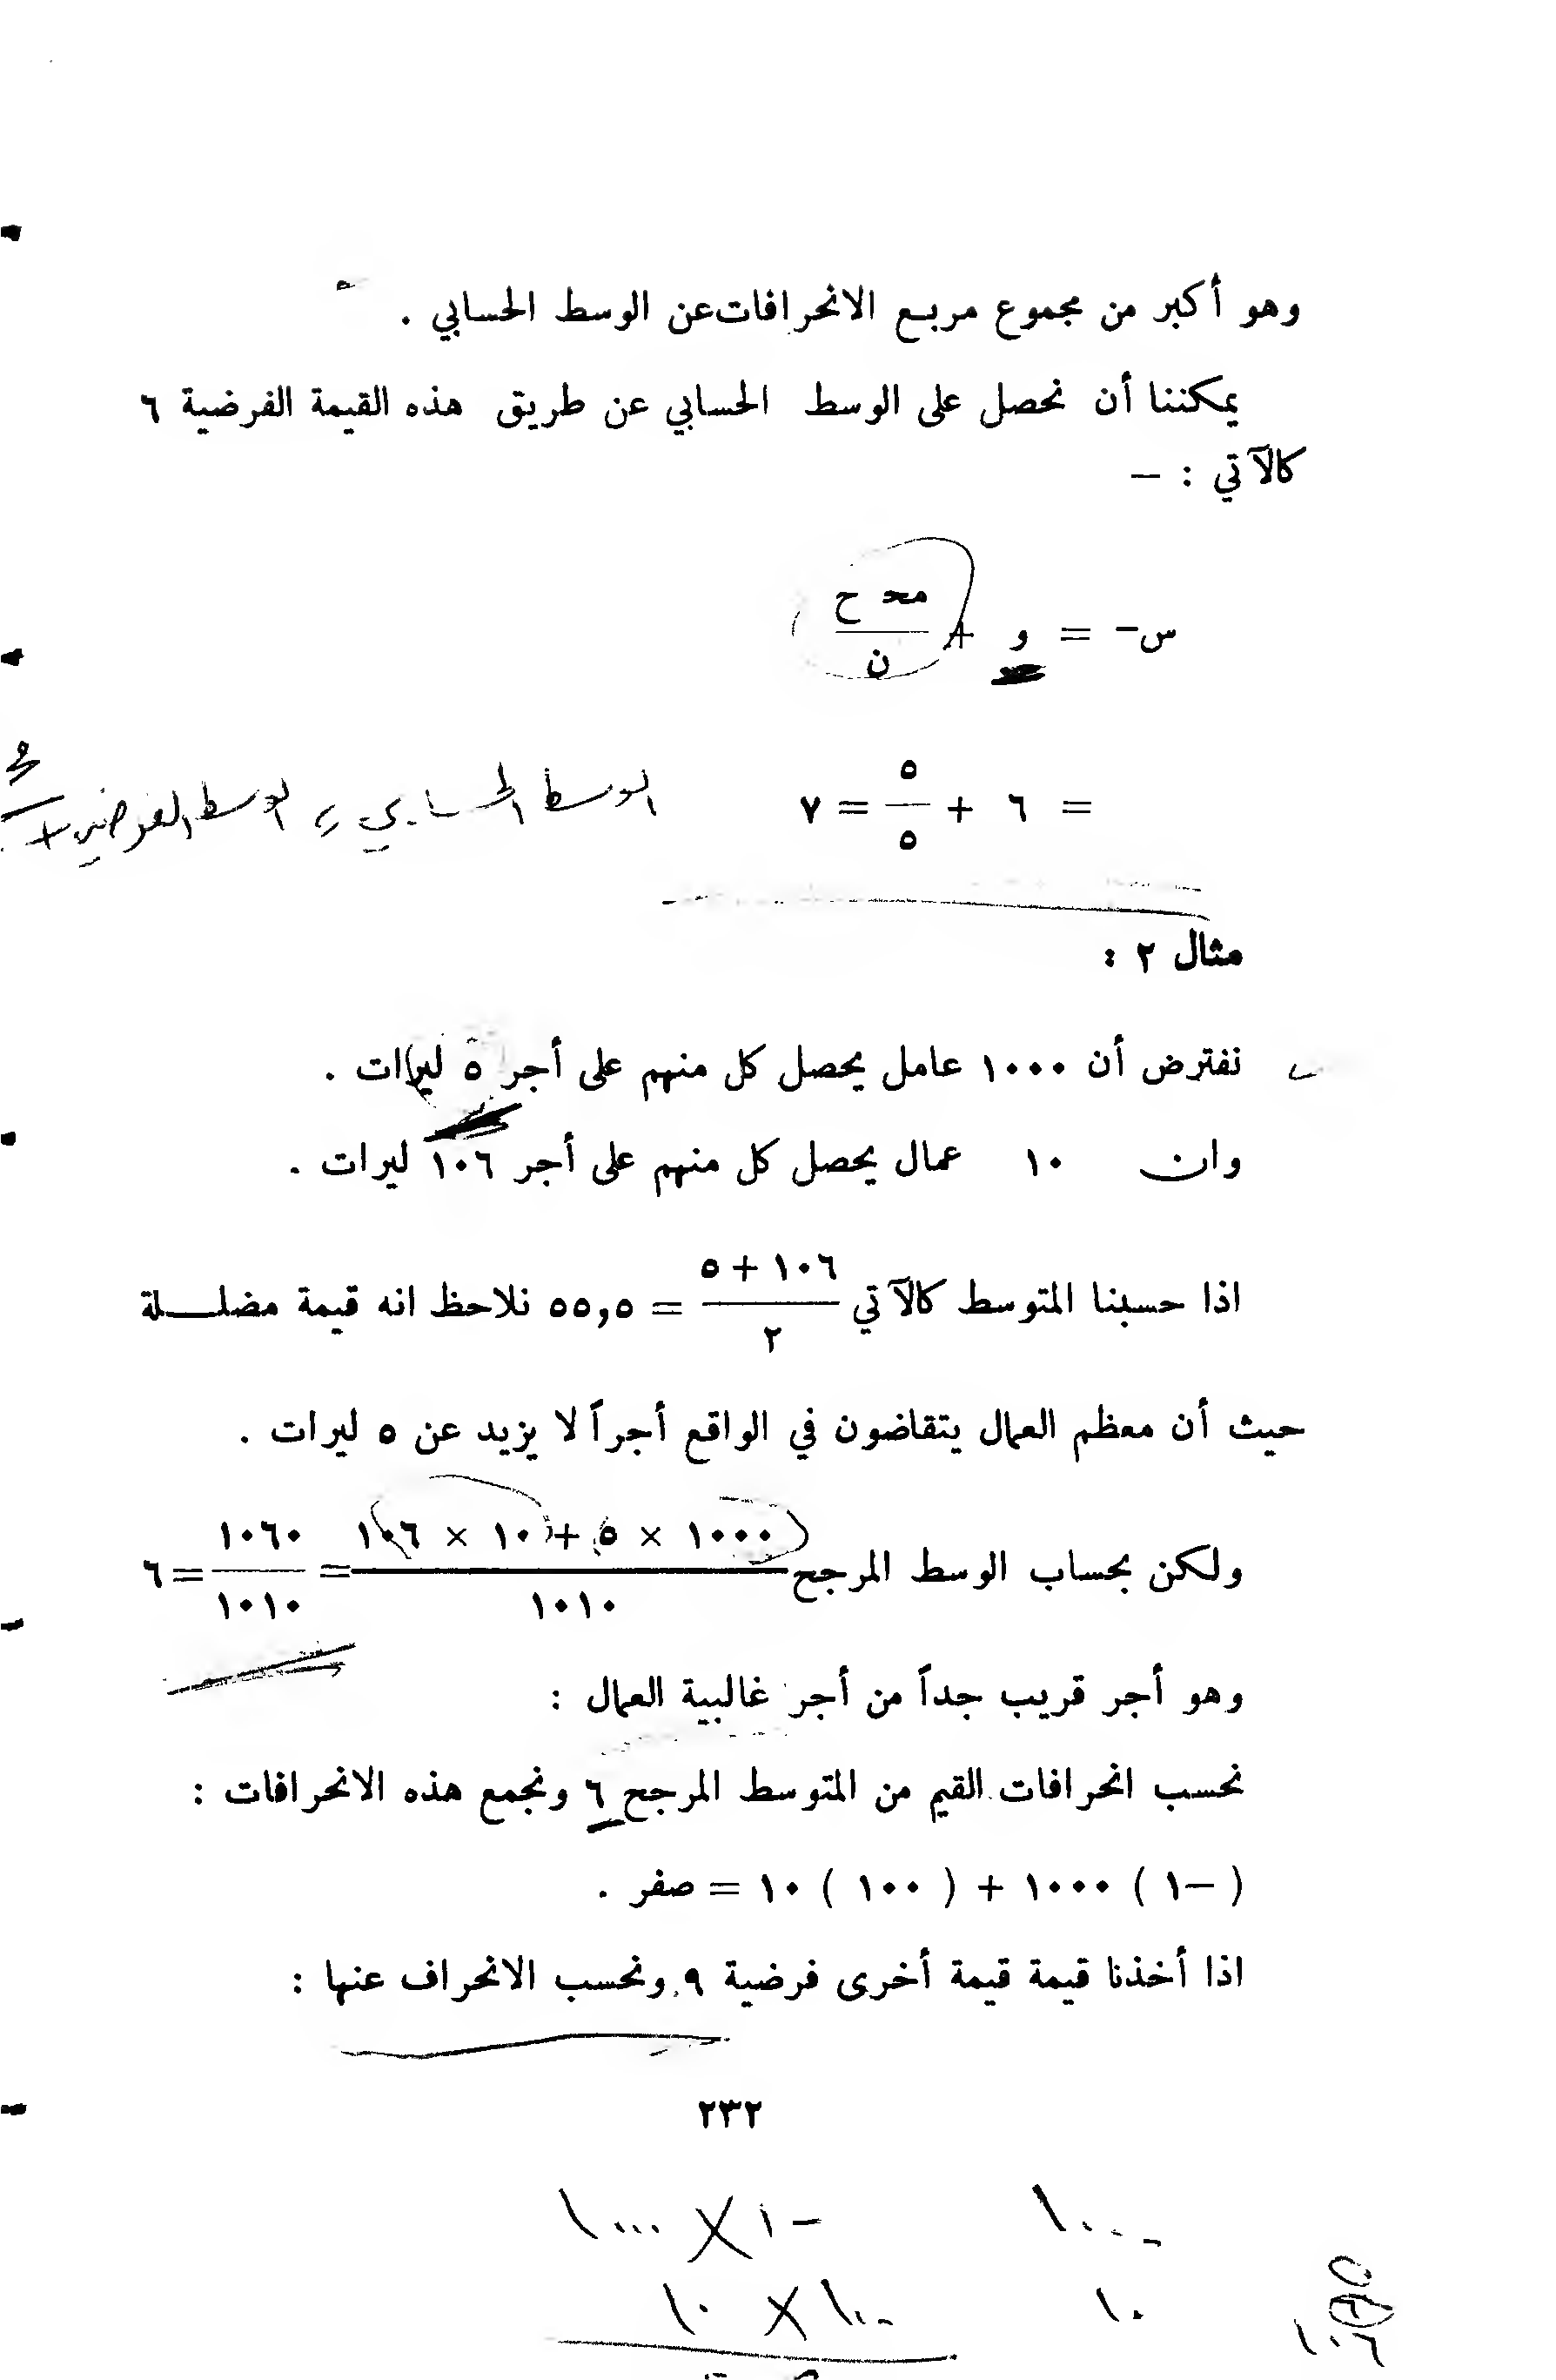 وهو أكبر من مجموع مربع الانحرافات عن الوسط الحسابي .
يمكننا أن نحصل على الوسط الحسابي عن طريق هذه القيمة الفرضية ٦
كالآتي : —
س- = و + مح ح / ن
= ٦ + ٥ / ٥ = ٧
الوسط الحسابي = الوسط الفرضي +
مثال ٢ :
نفترض أن ١٠٠٠ عامل يحصل كل منهم على أجر ٥ ليرات .
وان ١٠ عمال يحصل كل منهم على أجر ١٠٦ ليرات .
اذا حسبنا المتوسط كالآتي ١٠٦ + ٥ / ٢ = ٥٥,٥ نلاحظ انه قيمة مضللة
حيث أن معظم العمال يتقاضون في الواقع أجراً لا يزيد عن ٥ ليرات .
ولكن بحساب الوسط المرجح ١٠٠٠ × ٥ + ١٠ × ١٠٦ / ١٠١٠ = ١٠٦٠ / ١٠١٠ = ٦
وهو أجر قريب جداً من أجر غالبية العمال :
نحسب انحرافات القيم من المتوسط المرجح ٦ ونجمع هذه الانحرافات :
( -١ ) ١٠٠٠ + ( ١٠٠ ) ١٠ = صفر .
اذا أخذنا قيمة قيمة أخرى فرضية ٩ ونحسب الانحراف عنها :
٢٣٢
١٠٠٠ -١ × ١٠٠٠
١٠ ١٠٠ × ١٠
٥
٦
١٠٦